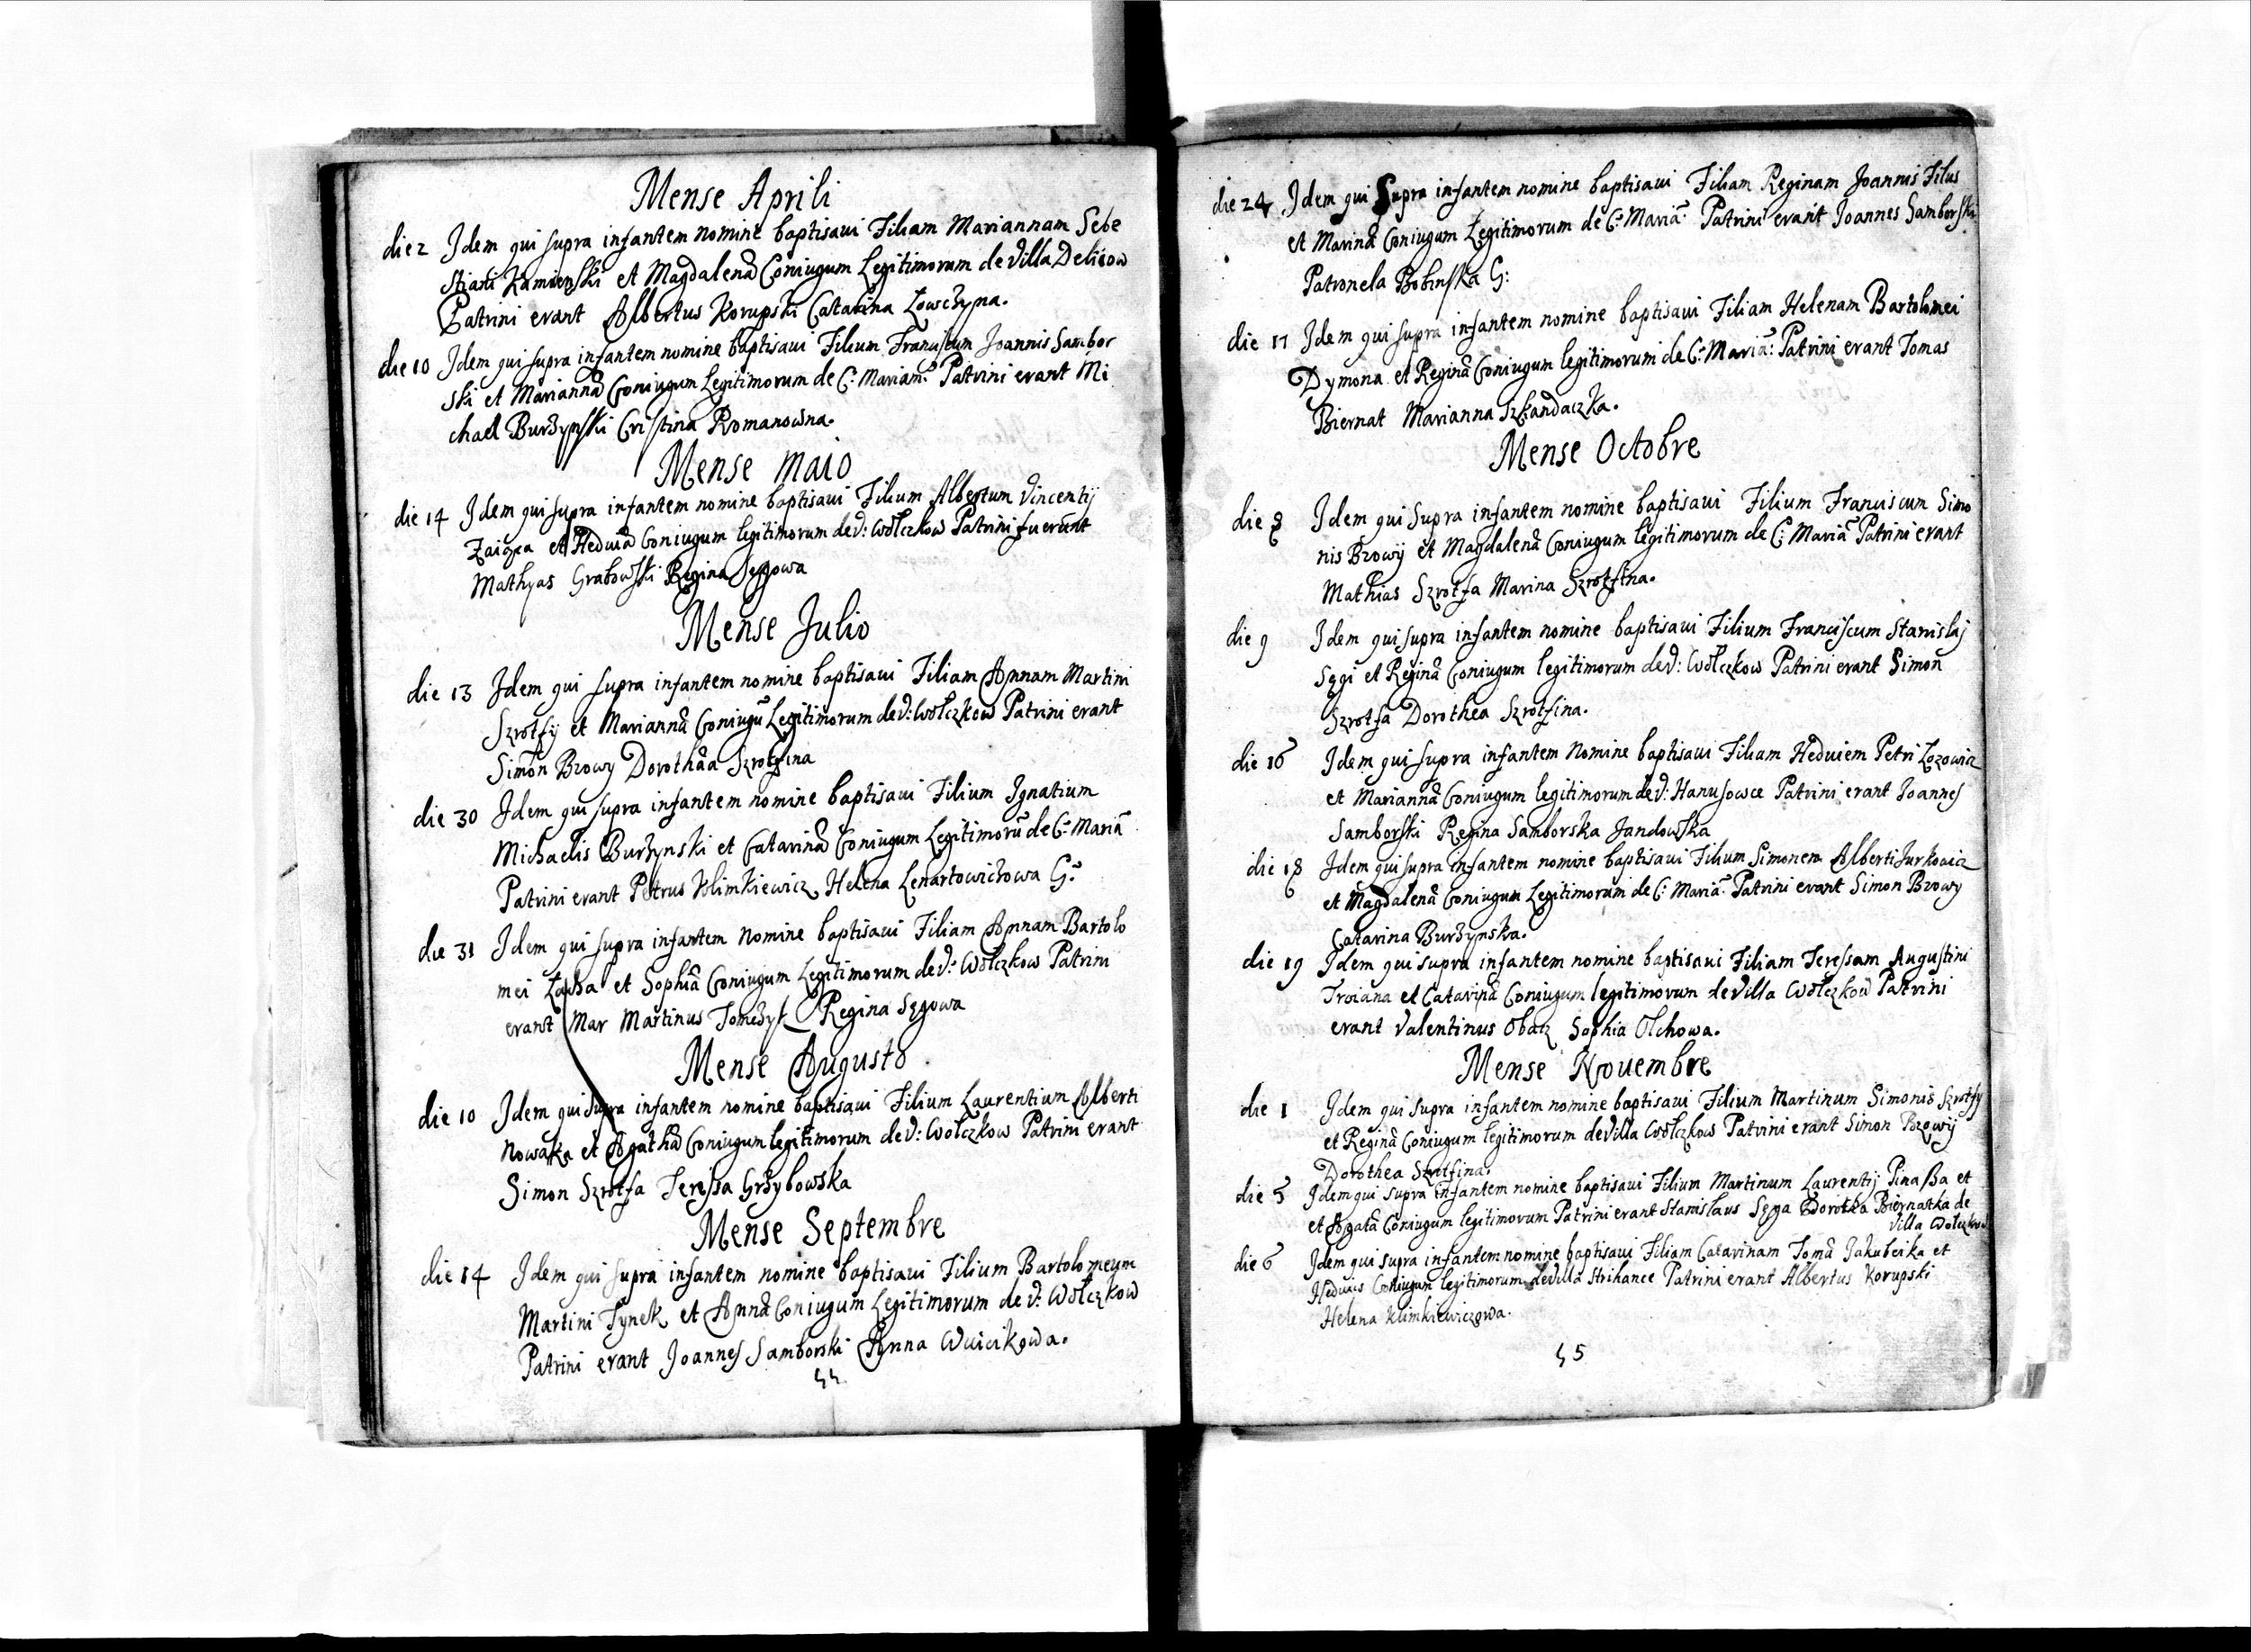 Mense Aprili
die 2 Idem qui supra infantem nomine baptisaui Filiam Mariannam Sebe
stiani Kamienski et Magdalenã Coniugum Legitimorum de Villa Deliiow
Patrini erant Albertus Korupski Catarina Łowczyna.
die 10 Idem qui supra infantem nomine baptisaui Filium Franciscum Joannis Sambor
ski et Mariannã Coniugum Legitimorum de C: Mariam: Patrini erant Mi
chael Burzynski Cristina Romanowna.
Mense Maio
die 14 Idem qui supra infantem nomine baptisaui Filium Albertum Vincentij
et Heduiã Coniugum legitimorum de V: Wołczkow Patrini fuerunt
Mathyas Grabowski Regina Sęgowa
Mense Julio
die 13 Idem qui supra infantem nomine baptisaui Filiam Annam Martini
Szrotfy et Mariannã Coniugũ Legitimorum de V: Wołczkow Patrini erant
Simon Browy Dorothaa Szrotfina
die 30 Idem qui supra infantem nomine baptisaui Filium Ignatium
Michaelis Burzynski et Catarinã Coniugum Legitimorũ de C: Mariã
Patrini erant Petrus Klimkiewicz Helena Lenartowiczowa G:
die 31 Idem qui supra infantem nomine baptisaui Filiam Annam Bartolo
mei et Sophiã Coniugum Legitimorum de V: Wołczkow Patrini
erant Mar Martinus Tomczyk Regina Sęgowa
Mense Augusto
die 10 Idem qui supra infantem nomine baptisaui Filium Laurentium Alberti
Nowaka et Agathã Coniugum legitimorum de V: Wołczkow Patrini erant
Simon Szrotfa Teressa Grzybowska
Mense Septembre
die 14 Idem qui supra infantem nomine baptisaui Filium Bartolomeum
Martini Tynek et Annã Coniugum Legitimorum de V: Wołczkow
Patrini erant Joannes Samborski Anna Wuicikowa.
44
die 24 Idem qui Supra infantem nomine baptisaui Filiam Reginam Joannis Filus
et Marinã Coniugum Legitimorum de C: Mariã: Patrini erant Joannes Samborski
Patronela Bobinska G:
die 17 Idem qui supra infantem nomine baptisaui Filiam Helenam Bartolomei
Dymona et Reginã Coniugum legitimorum de C: Mariã: Patrini erant Tomas
Biernat Marianna Szkandaczka.
Mense Octobre
die 8 Idem qui Supra infantem nomine baptisaui Filium Franciscum Simo
nis Browij et Magdalenã Coniugum legitimorum de C: Mariã Patrini erant
Mathias Szrotfa Marina Szrotfina.
die 9 Idem qui supra infantem nomine baptisaui Filium Franciscum Stanislaj
Sęgi et Reginã Coniugum legitimorum de V: Wołczkow Patrini erant Simon
Szrotfa Dorothea Szrotfina.
die 16 Idem qui supra infantem Nomine baptisaui Filiam Heduiem Petri Łozowicz
et Mariannã Coniugum legitimorum de V: Hanusowce Patrini erant Joannes
Samborski Regina Samborska Jandowska
die 18 Idem qui supra infantem nomine baptisaui Filium Simonem Alberti Jurkowicz
et Magdalenã Coniugum Legitimorum de C: Mariã: Patrini erant Simon Browy
Catarina Burzynska.
die 19 Idem qui supra infantem nomine baptisaui Filiam Teressam Augustini
Troiana et Catarinã Coniugum legitimorum de Villa Wołczkow Patrini
erant Valentinus Obacz Sophia Olchowa.
Mense Nouembre
die 1 Idem qui supra infantem nomine baptisaui Filium Martinum Simonis Szrotfy
et Reginã Coniugum legitimorum de Villa Wołczkow Patrini erant Simon Browij
Dorothea Szrotfina.
die 5 Idem qui supra infantem nomine baptisaui Filium Martinum Laurentij Pinaßa et
et Agatã Coniugum legitimorum Patrini erant Stanislaus Sęga Dorotha Biernatka de
Villa Wołczkow
die 6 Idem qui supra infantem nomine baptisaui Filiam Catarinam Tomã Jakubcika et
Heduuis Coniugum legitimorum de Villa Strihance Patrini erant Albertus Korupski
Helena Klimkiewiczowa.
45